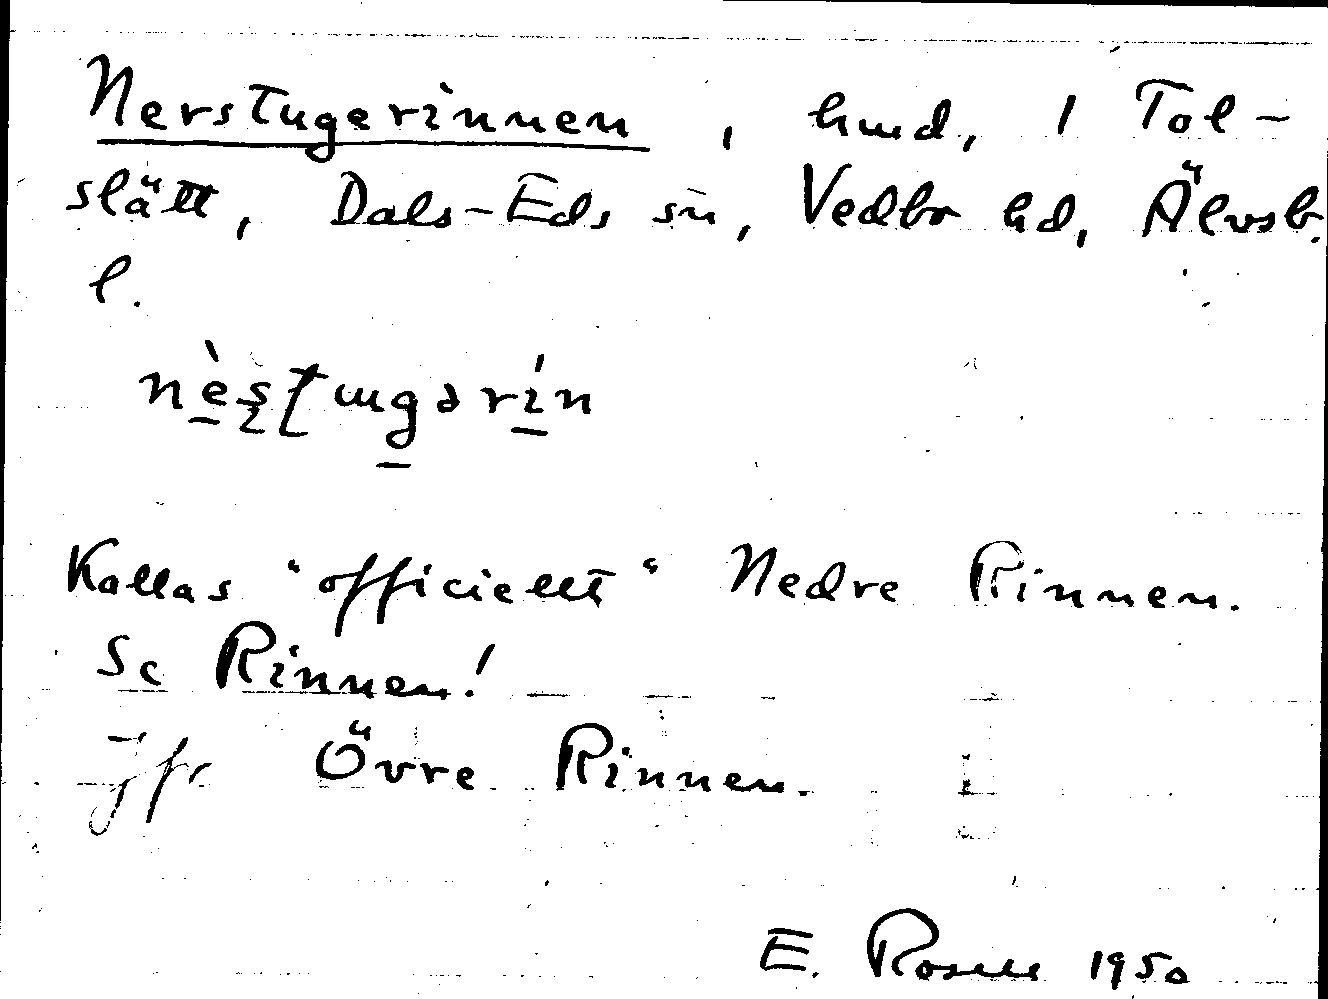 Nerstugerinnen, hmd, 1 Tol-
slätt, Dals-Eds sn, Vedbo hd, Älvsb.
l.
Kallas "officiellt" Nedre Rinnen.
Se Rinnen!
Jfr Övre Rinnen.
E. Rosell 1950